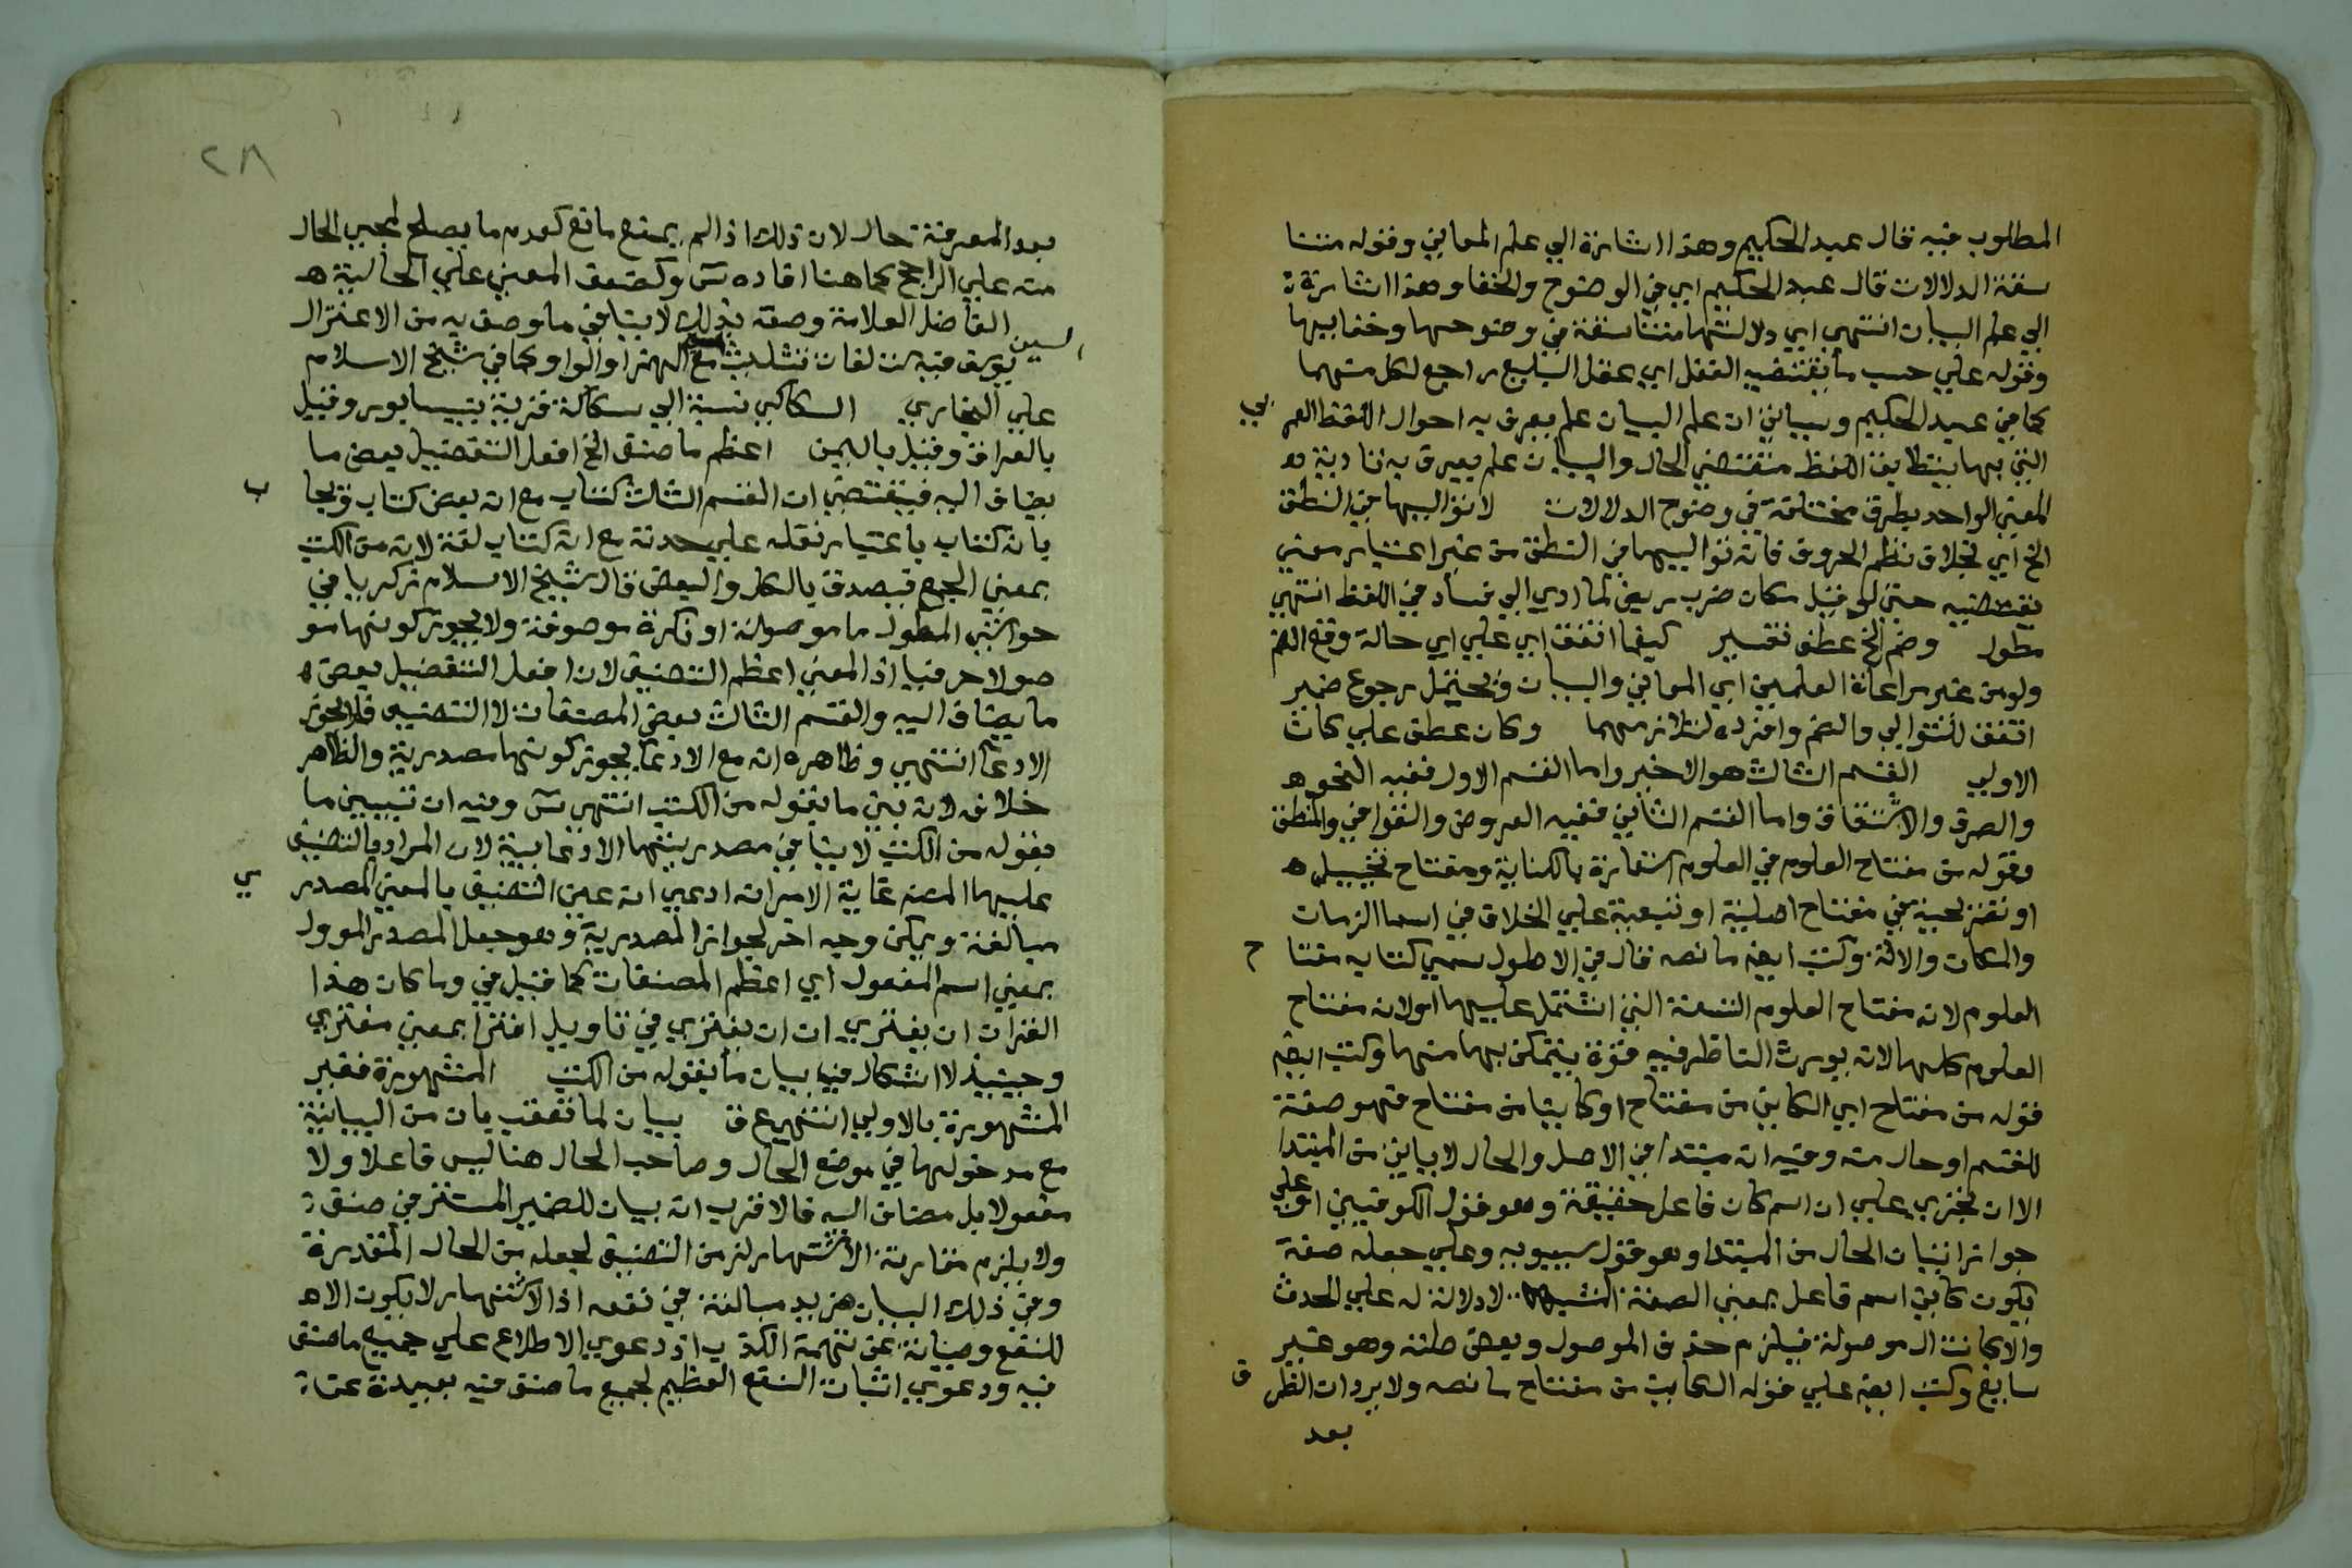 المطلوب فيه قال عبد الحكيم وهذا اشارة الي علم المعاني وقوله متنا
سقة الدلالات قال عبد الحكيم اي في الوضوح والخفا وهذا اشارة
الي علم البيان انتهي اي دلالتها متناسقة في وضوحها وخفايها
وقوله علي حسب ما يقتضيه العقل اي عقل البليغ راجع لكل منهما
كما في عبد الحكيم وسياتي ان علم البيان علم يعرف به احوال اللفظ العر بي
التي بها يتطابق اللفظ مقتضي الحال والبيان علم يعرف به تادية
المعني الواحد بطرق مختلفة في وضوح الدلالات لا تواليها في النطق
الخ اي بخلاف نظم الحروف فانه تواليها في النطق من غير اعتبار معني
يقتضيه حتي لو قيل مكان ضرب ربض لما ادي الي فساد في اللفظ انتهي
مطول وضم الخ عطف تفسير كيفما اتفق اي علي اي حالة وقع الضم
ولو من غير مراعاة العلمين اي المعاني والبيان ويحتمل رجوع ضمير
اتفق للتوالي والضم وافرده لتلازمهما وكان عطف علي كان
الاولي القسم الثالث هو الاخير واما القسم الاول ففيه النحو
والصرف والاشتقاق واما القسم الثاني ففيه العروض والقوافي والمنطق
وقوله من مفتاح العلوم في العلوم استعارة بالكناية ومفتاح تخييل
او تصريحية في مفتاح اصلية او تبعية علي الخلاف في اسما الزمان
والمكان والالة وكتب ايضه ما نصه قال في الاطول سمي كتابه مفتا ح
العلوم لانه مفتاح العلوم التسعة التي اشتمل عليها او لانه مفتاح
العلوم كلها لانه يورث الناظر فيه قوة يتمكن بها منها وكتب ايضه
قوله من مفتاح اي الكاين من مفتاح او كاينا من مفتاح فهو صفة
للقسم او حال منه وفيه انه مبتدا في الاصل والحال لا ياتي من المبتدا
الا ان نجري علي ان اسم كان فاعل حقيقة وهو قول الكوفيين او علي
جواز اتيان الحال من المبتدا وهو قول سيبويه وعلي جعله صفة
يكون كاين اسم فاعل بمعني الصفة المشبهة لا دلالة له علي الحدث
والا كانت ال موصولة فيلزم حذف الموصول وبعض صلته وهو غير
سايغ وكتب ايضه علي قوله الكاين من مفتاح ما نصه ولا يرد ان الظر ف
بعد
٢٨
بعد المعرفة حال لان ذلك اذا لم يمنع مانع كعدم ما يصلح لمجي الحال
منه علي الراجح كما هنا افاده سم وكضعف المعني علي الحالية ه
الفاضل العلامة وصفه بذلك لا ينافي ما وصف به من الاعتزال
يوسف فيه ست لغات تثليث السين مع الهمز او الواو كما في شيخ الاسلام
علي البخاري السكاكي نسبة الي سكاكة قرية بنيسابور وقيل
بالعراق وقيل باليمن اعظم ما صنف الخ افعل التفضيل بعض ما
يضاف اليه فيقتضي ان القسم الثالث كتاب مع انه بعض كتاب ويجا ب
بانه كتاب باعتبار نقله علي حدته مع انه كتاب لغة لانه من الكتب
بمعني الجمع فيصدق بالكل والبعض قال شيخ الاسلام زكريا في
حواشي المطول ما موصولة او نكرة موصوفة ولا يجوز كونها مو
صولا حرفيا اذ المعني اعظم التصنيف لان افعل التفضيل بعض ه
ما يضاف اليه والقسم الثالث بعض المصنفات لا التصنيف فلا يجوز
الا دعا انتهي وظاهره انه مع الادعا يجوز كونها مصدرية والظاهر
خلافه لانه بين ما بقوله من الكتب انتهي سم وفيه ان تبيين ما
بقوله من الكتب لا ينافي مصدريتها الادعايية لان المراد بالتصنيف
عليها المصنف غاية الامر انه ادعي انه عين التصنيف بالمعني المصدر ي
مبالغة ويمكن وجه اخر لجواز المصدرية وهو جعل المصدر الموول
بمعني اسم المفعول اي اعظم المصنفات كما قيل في وما كان هذا
القران ان يفتري ان ان يفتري في تاويل افترا بمعني مفتري
وحينيذ لا اشكال في بيان ما بقوله من الكتب المشهورة فقير
المشهورة بالاولي انتهي ع ق بيان لما تعقب بان من البيانية
مع مدخولها في موضع الحال وصاحب الحال هنا ليس فاعلا ولا
مفعولا بل مضاف اليه فالاقرب انه بيان للضمير المستتر في صنف
ولا يلزم مقارنة الاشتهار لزمن التصنيف لجعله من الحال المقدرة
وفي ذلك البيان مزيد مبالغة في نفعه اذ الاشتهار لا يكون الا ه
للنفع وصيانة عن تهمة الكذب اذ دعوي الاطلاع علي جميع ما صنف
فيه ودعوي اثبات النفع العظيم لجميع ما صنف فيه بعيدة عن